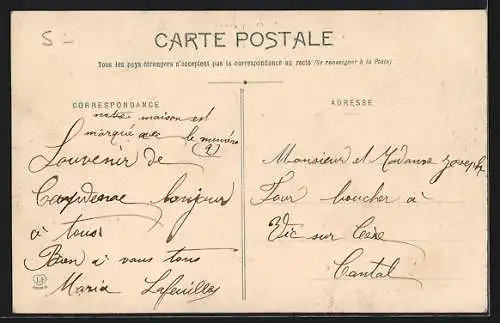 5 -
CARTE POSTALE
Tous les pays étrangers n'acceptent pas la correspondance au recto (Se renseigner à la Poste)
CORRESPONDANCE
notre maison est
marqué avec le numéro
(2)
Souvenir de
Capdenac bonjour
à tous
Bien à vous tous
Maria
ADRESSE
Monsieur et Madame Joseph
Four boucher à
Vic sur Cère
Cantal